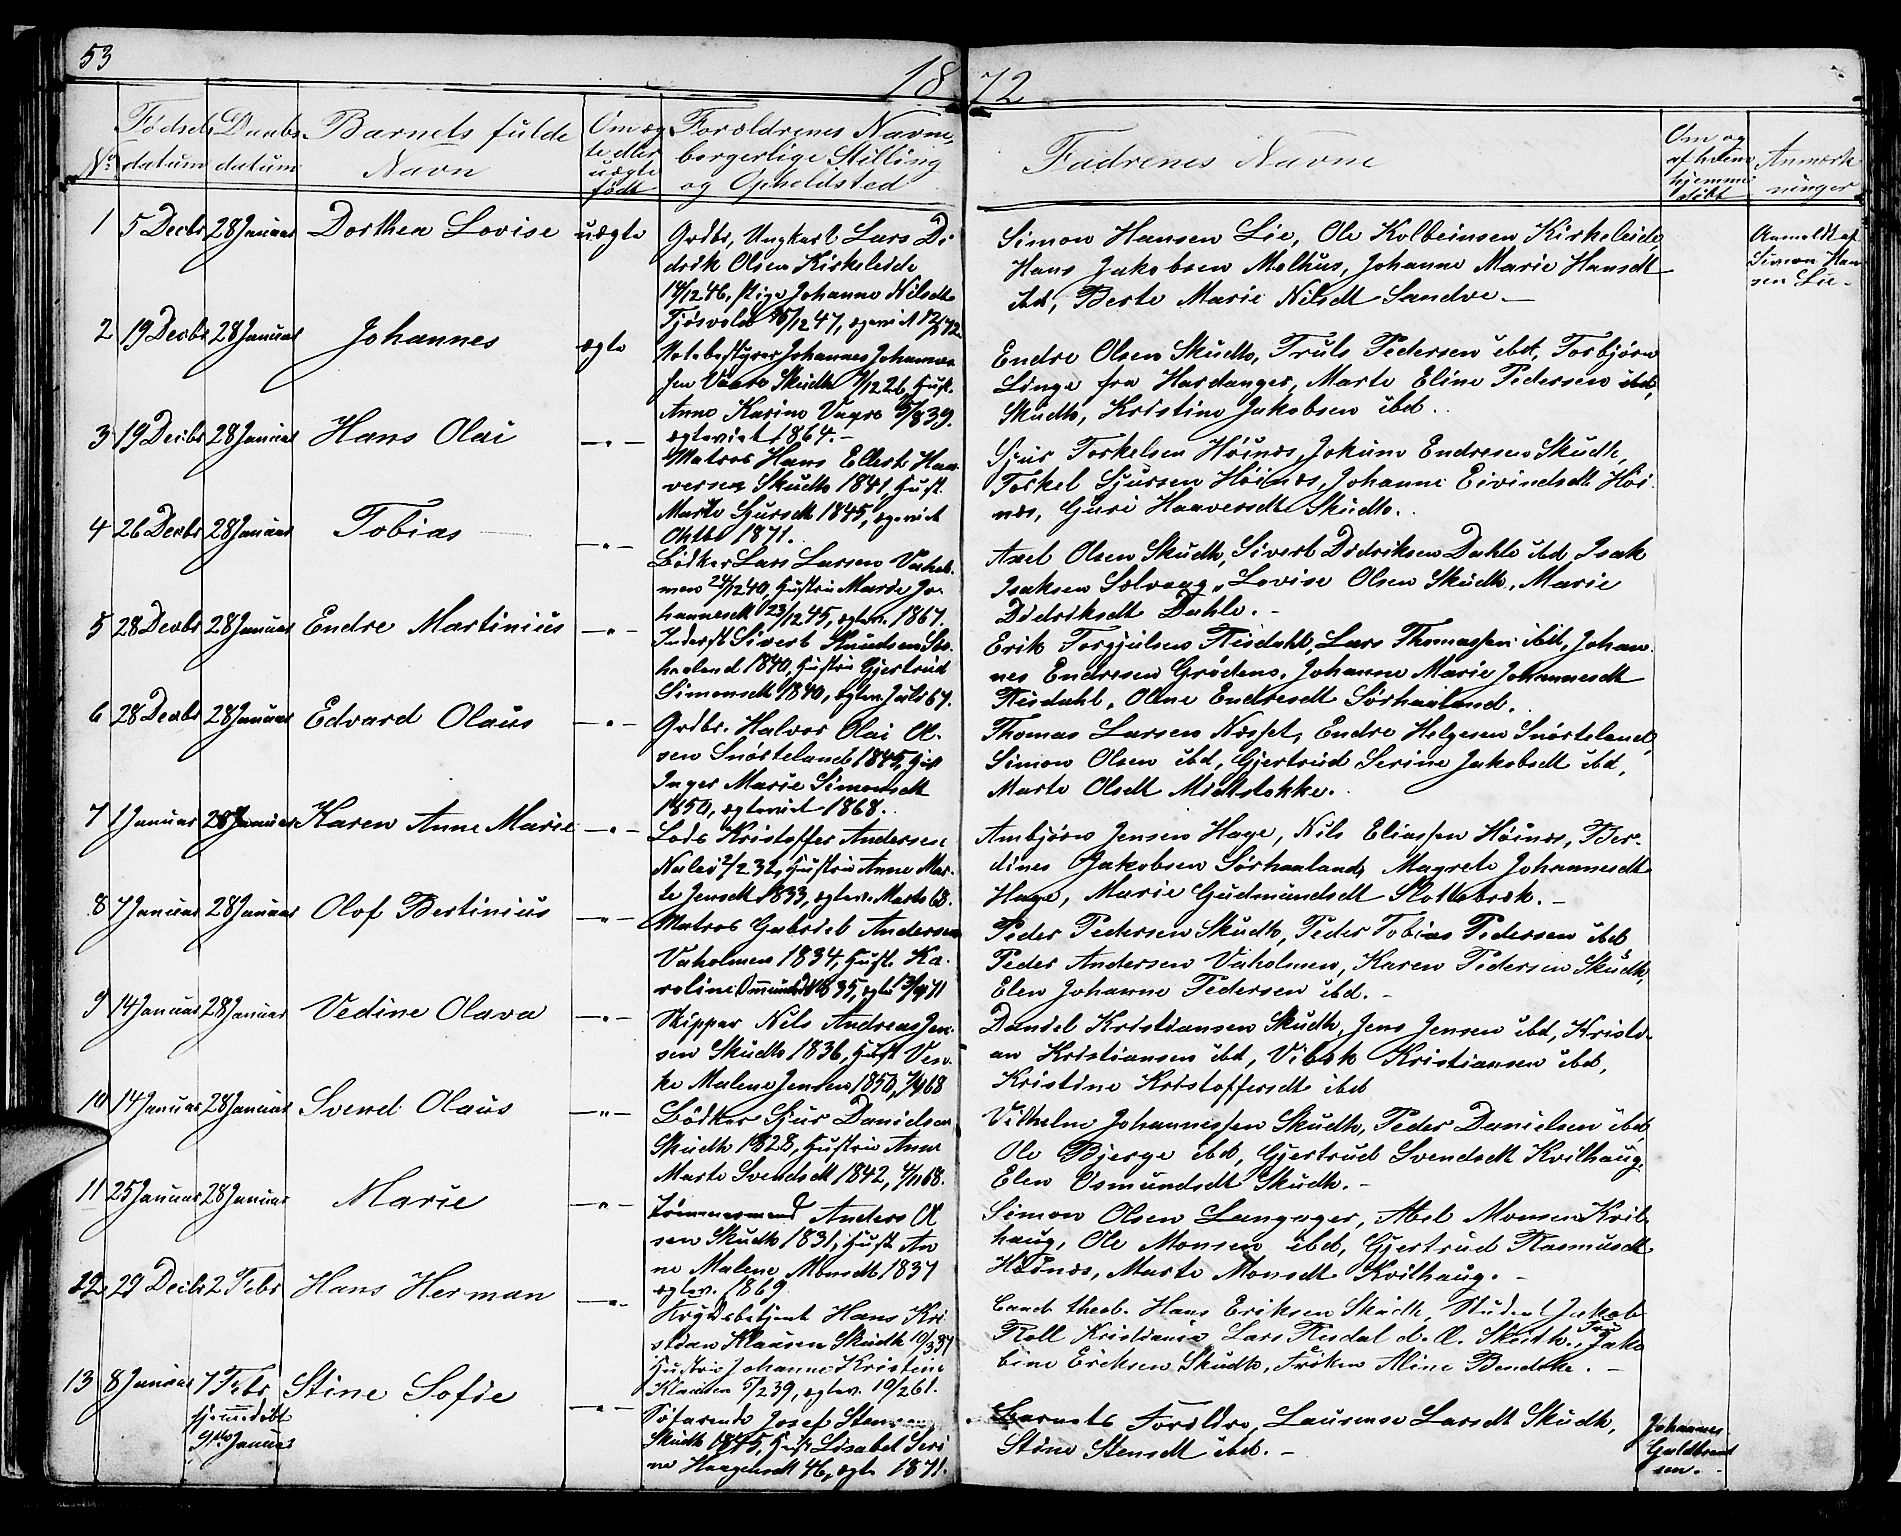 53
1872
No
Fødsels
datum
Daabs
datum
Barnets fulde
Navn
Om æg
te eller
uægte
født
Forældrenes Navne,
borgerlige Stilling
og Opholdsted
Fadrenes Navne
Om og
af hvem
hjemme
døbt
Anmærk
ninger
1 5 Decbr 28 Januar Dorthea Lovise uægte
Grdbr, Ungkarl Lars Di
drik Olsen Kirkeleide
14/12 46, Pige Johanne Nilsdt
Simon Hansen Lie, Ole Kolbeinsen Kirkeleide,
Hans Jakobsen Melhus, Johanne Marie Hansdt
ibd, Berte Marie Nilsdt Sandve. –
Anmeldt af
Simon Han
sen Lie. –
2 19 Decbr 28 Januar Johannes ægte
Johannes Johannes
sen Vaare Skudh 4/12 26, Hust.
Anne Karine Vaare 5/8 39.
ægteviet 1864. –
Endre Olsen Skudh, Truls Pedersen ibd, Torbjørn
Linge fra Hardanger, Marte Eline Pedersen ibd,
Skudh, Kristine Jakobsen ibd.
3 19 Decbr 28 Januar Hans Olai – " –
Matros Hans Ellert Haa
versen Skudh 1841, Hust.
Marte Sjursdt 1845, ægteviet
Oktbr 1871.
Sjur Torkelsen Høines, Jokum Endresen Skudh,
Torkel Sjursen Høines, Johanne Eivindsdt Høi
nes, Guri Haaversdt Skudh.
4 26 Decbr 28 Januar Tobias – " –
Bødker Lars Larsen Vahol
men 24/12 40, Hustru Marie Jo
hannesdt 23/12 45, ægtev. 1867.
Axel Olsen Skudh, Sivert Didriksen Dahle ibd, Isak
Isaksen Solvaag, Lovise Olsen Skudh, Marie
Didriksdt Dahle. –
5 28 Decbr 28 Januar Endre Martinius – " –
Inderst Sivert Knudsen Sør
haaland 1840, Hustru Gjertrud
Simonsdt 1840, ægtev. Juli 67.
Erik Torgjulsen Risdahl, Lars Thomassen ibd, Johan
nes Endresen Grødem, Johanne Marie Johannesdt
Risdahl, Oline Endresdt Sørhaaland.
6 28 Decbr 28 Januar Edvard Olaus – " –
Grdbr. Halvor Olai Ol
sen Snørteland 1845, Hust
Inger Marie Simonsdt
1850, ægteviet 1868.
Thomas Larsen Nesset, Endre Helgesen Snørteland,
Simon Olsen ibd, Gjertrud Serine Jakobsdt ibd,
Marte Olsdt Midtstokke.
7 1 Januar 28 Januar Karen Anne Marie – " –
Lods Kristoffer Andersen
2/2 32, Hustru Anne Mar
te Jensdt 1833, ægtev. Marts 68.
Ambjørn Jensen Hage, Nils Eliassen Høines, Ber
dines Jakobsen Sørhaaland, Magrete Johannesdt
Hage, Marie Gudmundsdt Slottebrek. –
8 7 Januar 28 Januar Olof Bertinius – " –
Matros Gabriel Andersen
Vaholmen 1834, Hust. Ka
roline Omundsdt 1835, ægtv
Peder Pedersen Skudh, Peder Tobias Pedersen ibd
Peder Andersen Vaholmen, Karen Pedersen Skudh,
Elen Johanne Pedersen ibd. –
9 14 Januar 28 Januar Vedine Olava – " –
Skipper Nils Andreas Jen
sen Skudh 1836, Hust Ven
ke Malene Jensen 1850,
Daniel Kristiansen Skudh, Jens Jensen ibd, Kristi
an Kristiansen ibd, Vibek Kristiansen ibd,
Kristine Kristoffersdt ibd
10 14 Januar 28 Januar Svend Olaus – " –
Bødker Sjur Danielsen
Skudh 1828, Hustru Anne
Marte Svendsdt 1842, 4/11 68.
Vilhelm Johannessen Skudh, Peder Danielsen ibd,
Ole Bjerge ibd, Gjertrud Svendsdt Kvilhaug,
Elen Osmundsdt Skudh. –
11 25 Januar 28 Januar Marie – " –
Tømmermand Anders Ol
sen Skudh 1831, Hust An
ne Malene Monsdt 1837
ægtev. 1869
Simon Olsen Langager, Abel Monsen Kvil
haug, Ole Monsen ibd, Gjertrud Rasmusdt
Høines, Marte Monsdt Kvilhaug. –
12 29 Decbr 2 Febr Hans Herman – " –
Krydsbetjent Hans Kri
stian Klausen Skudh 10/3 37
Hustru Johanne Kristine
Klausen 5/2 39, ægtev. 10/2 61.
Cand. theol. Hans Eriksen Skudh, Student Jakob
Roll Kristiania, Lars Risdal d. Æ. Skudh., Fru Jako
bine Eriksen Skudh, Frøken Aline Bendeke. –
13 8 Januar 7 Febr Stine Sofie – " –
hjemmedøbt
9de Januar
Søfarende Josef Stensen
Skudh 1845, Hust Lisabet Seri
ne Haagensdt 46, ægtv 1871.
Barnets Forældre, Laurense Larsdt Skudh,
Stine Stensdt ibd. –
Johannes
Guldbrand
sen. –